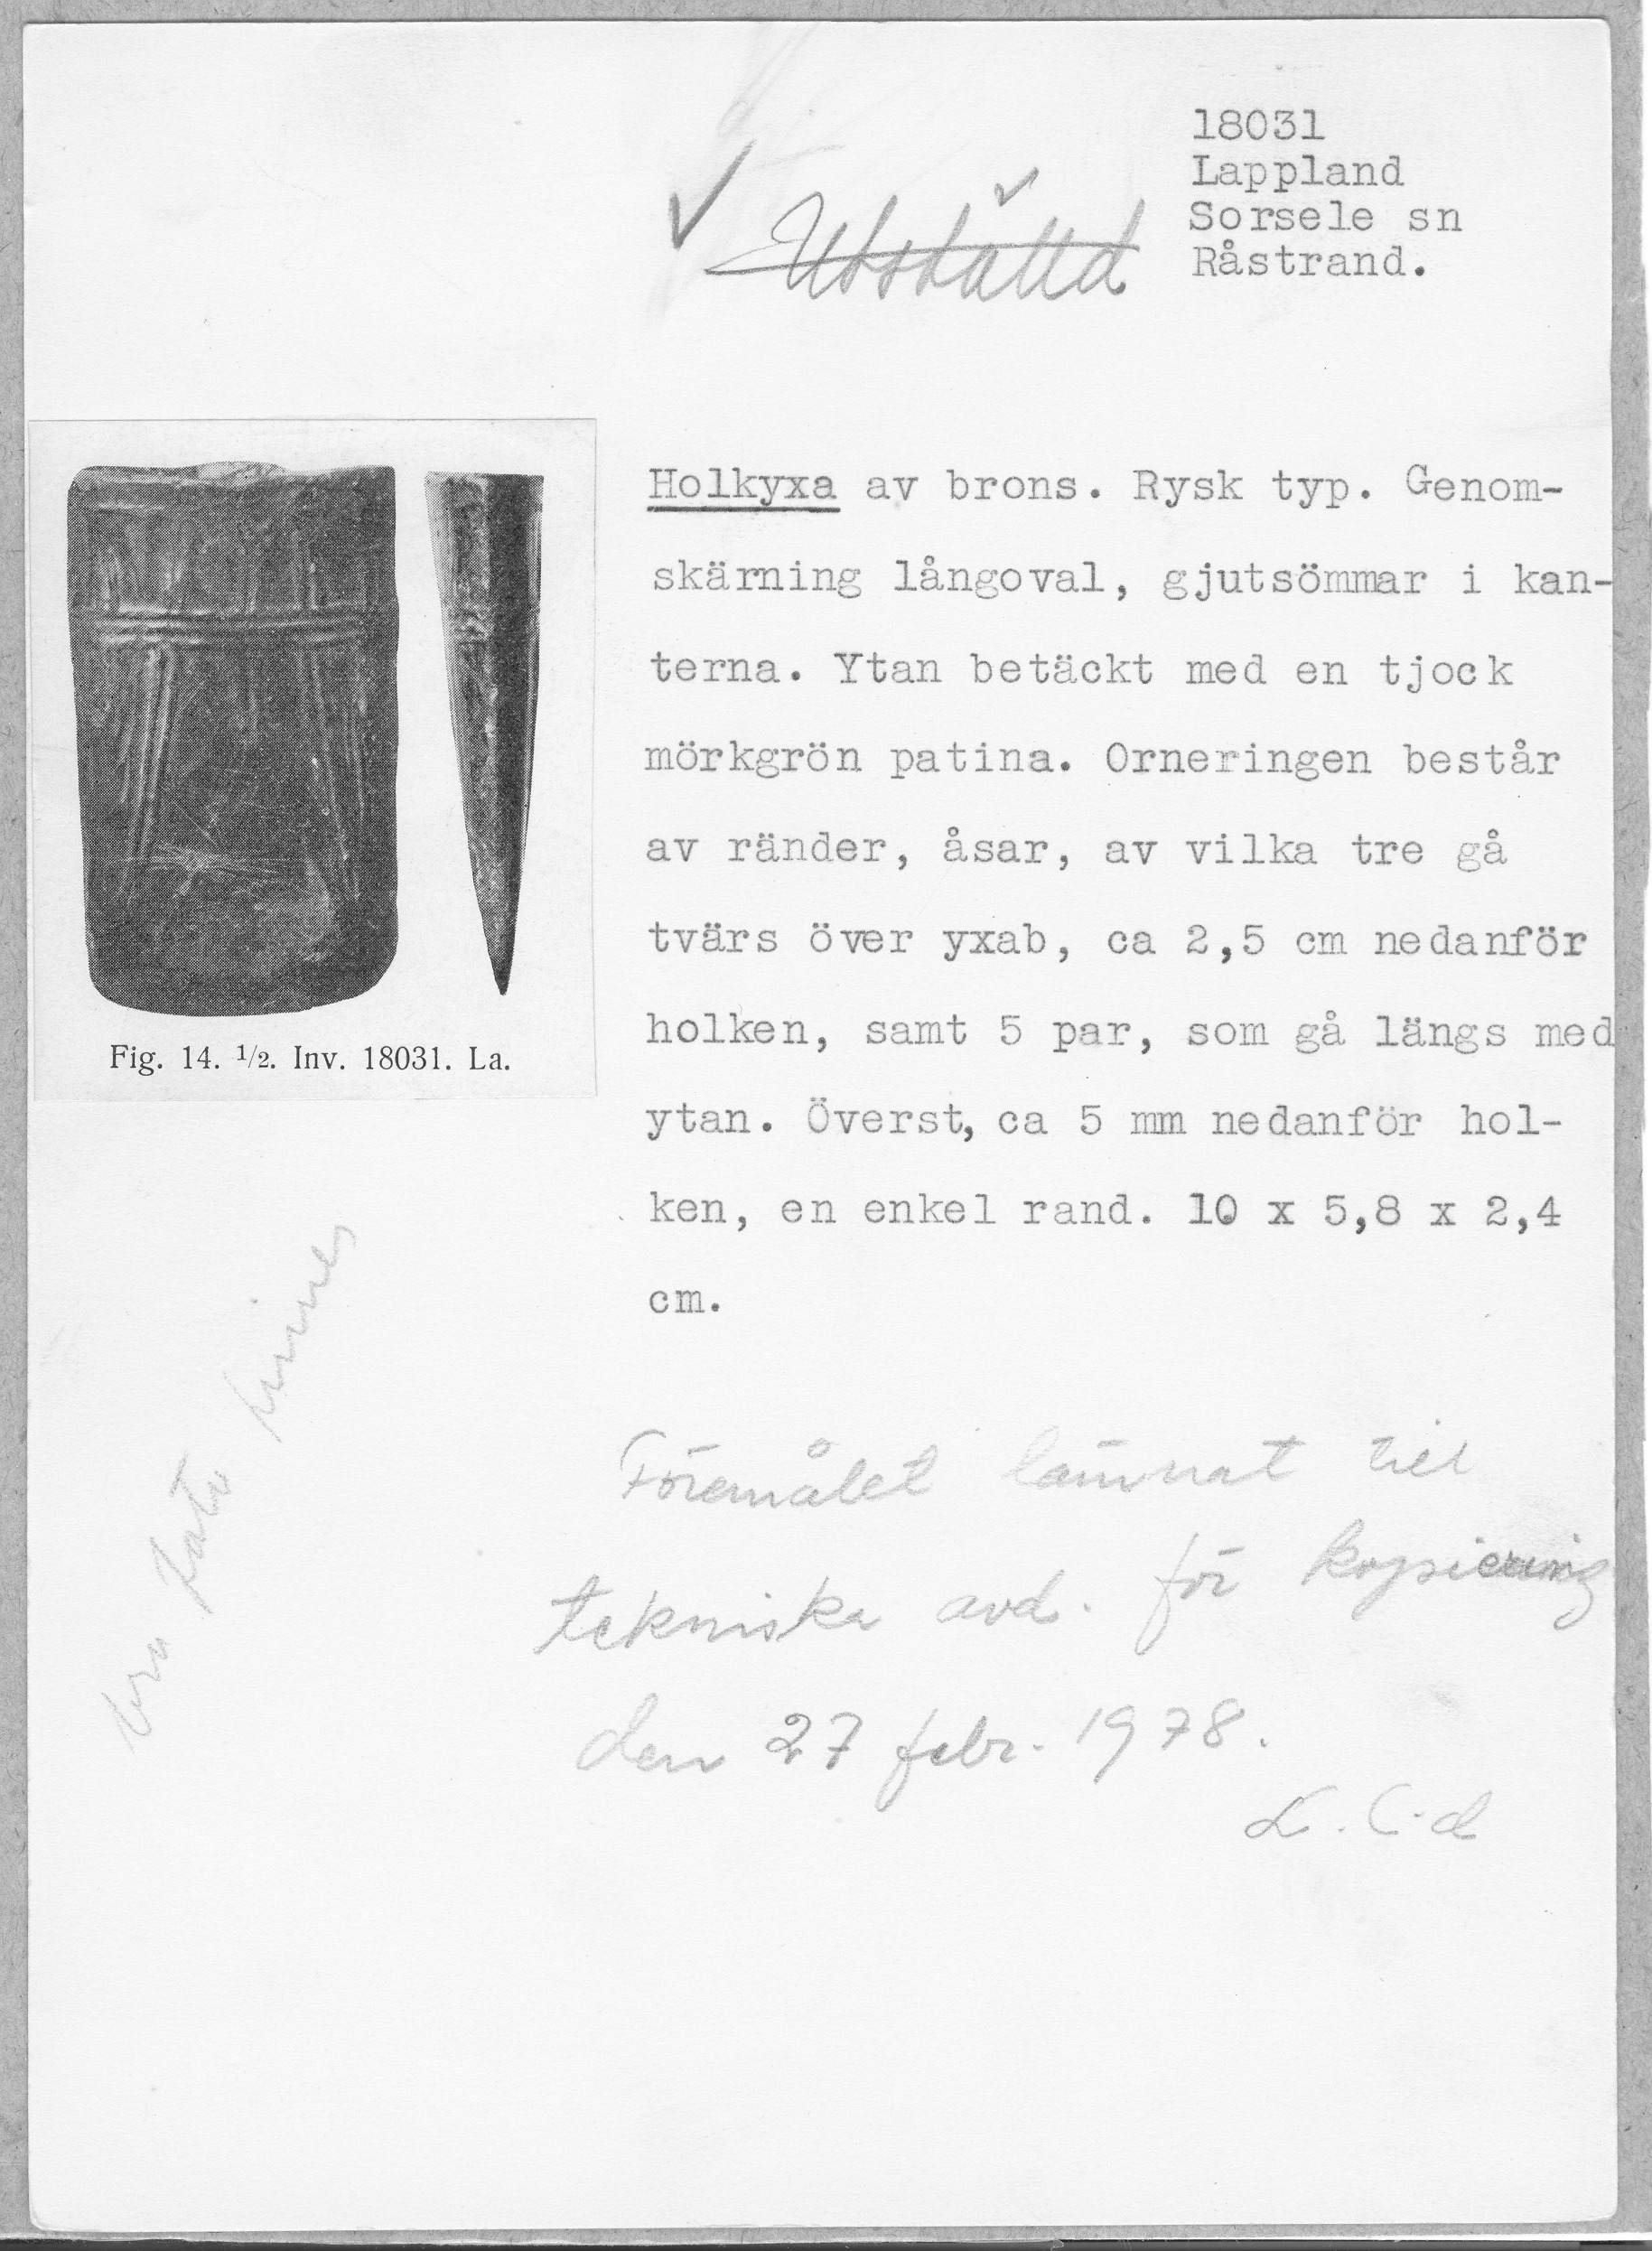 18031
Lappland
Sorsele sn
Råstrand.
Utställd
Holkyxa av brons. Rysk typ. Genom-
skärning långoval, gjutsömmar i kan-
terna. Ytan betäckt med en tjock
mörkgrön patina. Orneringen består
av ränder, åsar, av vilka tre gå
tvärs över yxab, ca 2,5 cm nedanför
holken, samt 5 par, som gå längs med
ytan. Överst, ca 5 mm nedanför hol-
ken, en enkel rand. 10 x 5,8 x 2,4
cm.
Fig. 14. 1/2. Inv. 18031. La.
bra foto finnes
Föremålet lämnat till
tekniska avd. för kopiering
den 27 febr. 1978.
L. C-d